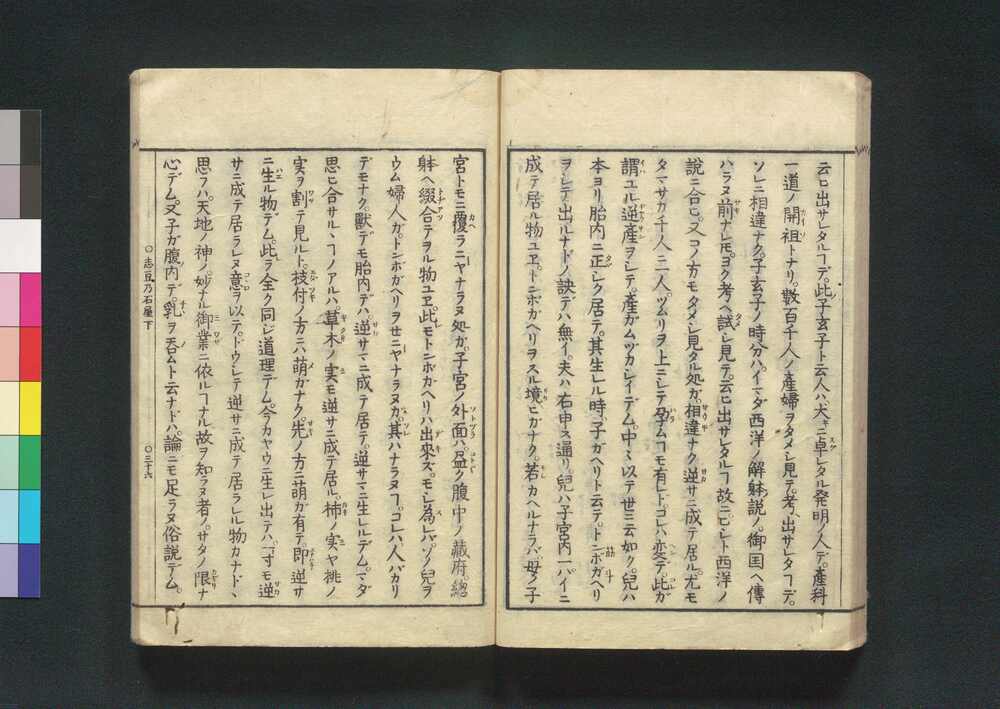 云ヒ出サレタルヿデ。此子玄子ト云人ハ。大キニ卓レタル発明ノ人デ。産科
一道ノ開祖トナリ。數百千人ノ産婦ヲタメシ見テ。考ヘ出サレタヿデ。
ソレニ相違ナク。子玄子ノ時分ハ。イマダ西洋ノ解躰説ノ。御国ヘ傳
ハラヌ前ナレドモ。ヨク考ヘ試シ見テ。云ヒ出サレタルヿ故ニ。ヒシト西洋ノ
説ニ合ヒ。又コノ方モタメシ見タル処ガ。相違ナク逆サニ成テ居ル。尤モ
タマサカ千人ニ二人。ヅムリヲ上ニシテ孕ムヿモ有レド。コレハ変デ。此ガ
謂ユル逆産ヲシテ。産ガムヅカシイデム。中々以テ世ニ云如ク。兒ハ
本ヨリ胎内ニ正シク居テ。其生レル時。子ガヘリト云テ。トンボガヘリ
ヲシテ。出ルナドノ訣デハ無イ。夫ハ右申ス通リ。兒ハ子宮内一パイニ
成テ居ル物ユヱ。トンボガヘリヲスル境ヒガナク。若カヘルナラバ。母ノ子
宮トモニ覆ラニヤナラヌ処ガ。子宮ノ外面ハ。盡ク腹中ノ藏府。総
躰ヘ綴合テヲル物ユヱ。此モトンボガヘリハ出來ズ。モシ為レバ。ソノ兒ヲ
ウム婦人ガ。トンボガヘリヲセニヤナラヌガ。其ハナラヌヿ。コレハ人バカリ
デモナク。獸デモ胎内デハ。逆サマニ成テ居テ。逆サマニ生レルデム。マダ
思ヒ合サルヽヿノアルハ。草木ノ実モ逆サニ成テ居ル。柿ノ実ヤ桃ノ
実ヲ割テ見ルト。枝付ノ方ニハ萌ガナク。先ノ方ニ萌ガ有テ。即逆サ
ニ生ル物デム。此ラ全ク同ジ道理デム。今カヤウニ生レ出テハ。一寸モ逆
サニ成テ居ラレヌ意ヲ以テ。ドウシテ逆サニ成テ居ラレル物カナドヽ
思フハ。天地ノ神ノ妙ナル御業ニ依ルヿナル故ヲ知ラヌ者ノ。サタノ限ナ
心デム。又子ガ腹内デ。乳ヲ呑ムト云ナドハ。論ニモ足ラヌ俗説デム。
○志豆乃石屋下
○三十六